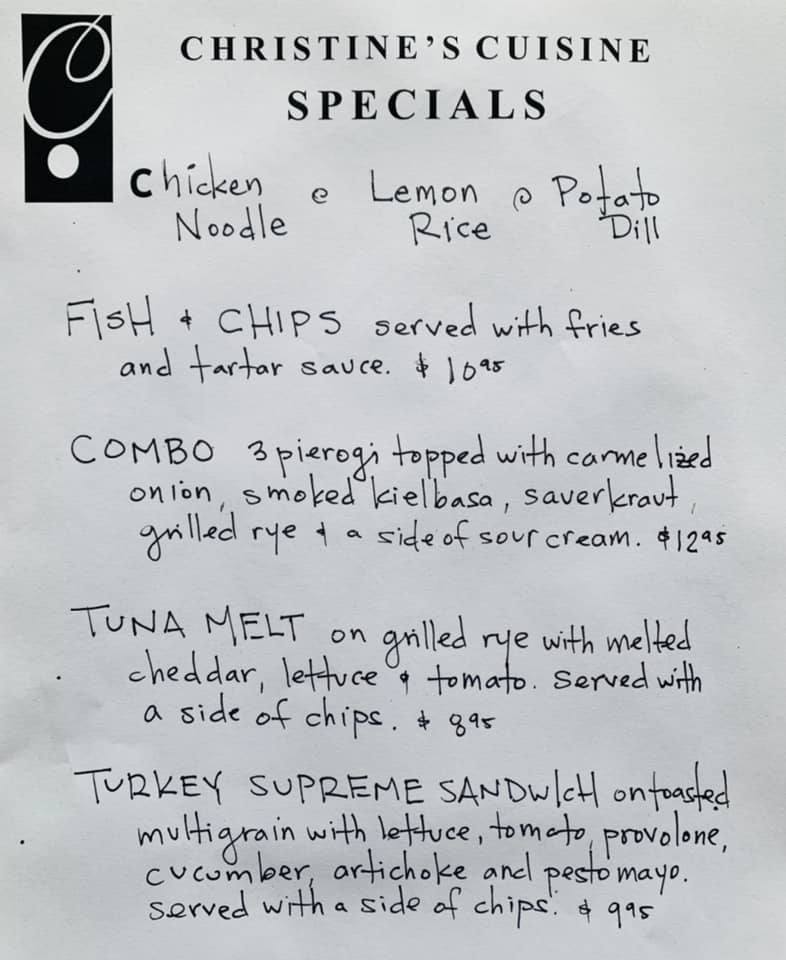 C
CHRISTINE'S CUISINE
SPECIALS
Chicken @ Lemon @ Potato
Noodle Rice Dill
FISH & CHIPS served with fries
and tartar sauce. $10.95
COMBO 3 pierogi topped with carmelized
onion, smoked kielbasa, saverkraut,
grilled rye & a side of sour cream. $12.95
TUNA MELT on grilled rye with melted
cheddar, lettuce & tomato. Served with
a side of chips. $8.95
TURKEY SUPREME SANDWICH on toasted
multigrain with lettuce, tomato, provolone,
cucumber, artichoke and pesto mayo.
Served with a side of chips. $9.95